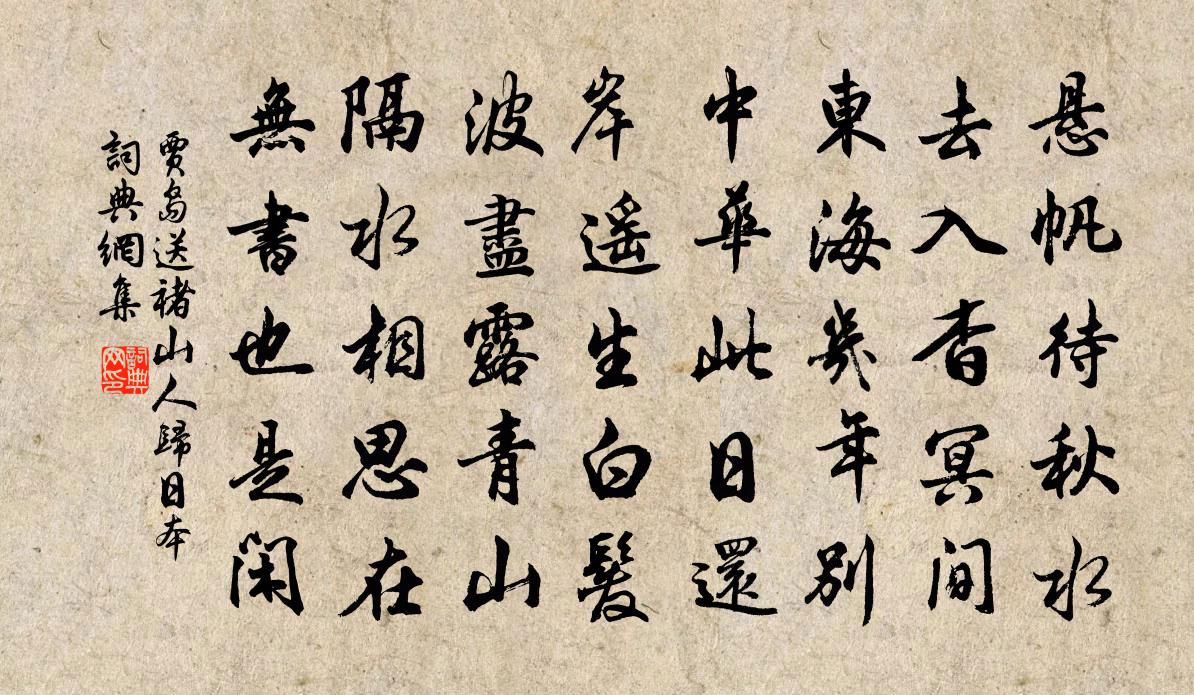 悬帆待秋水
去入杳冥间
東海幾年别
中華此日還
岸遥生白髮
波盡露青山
隔水相思在
無書也是閑
賈島送褚山人歸日本
詞典網集
詞典
网印